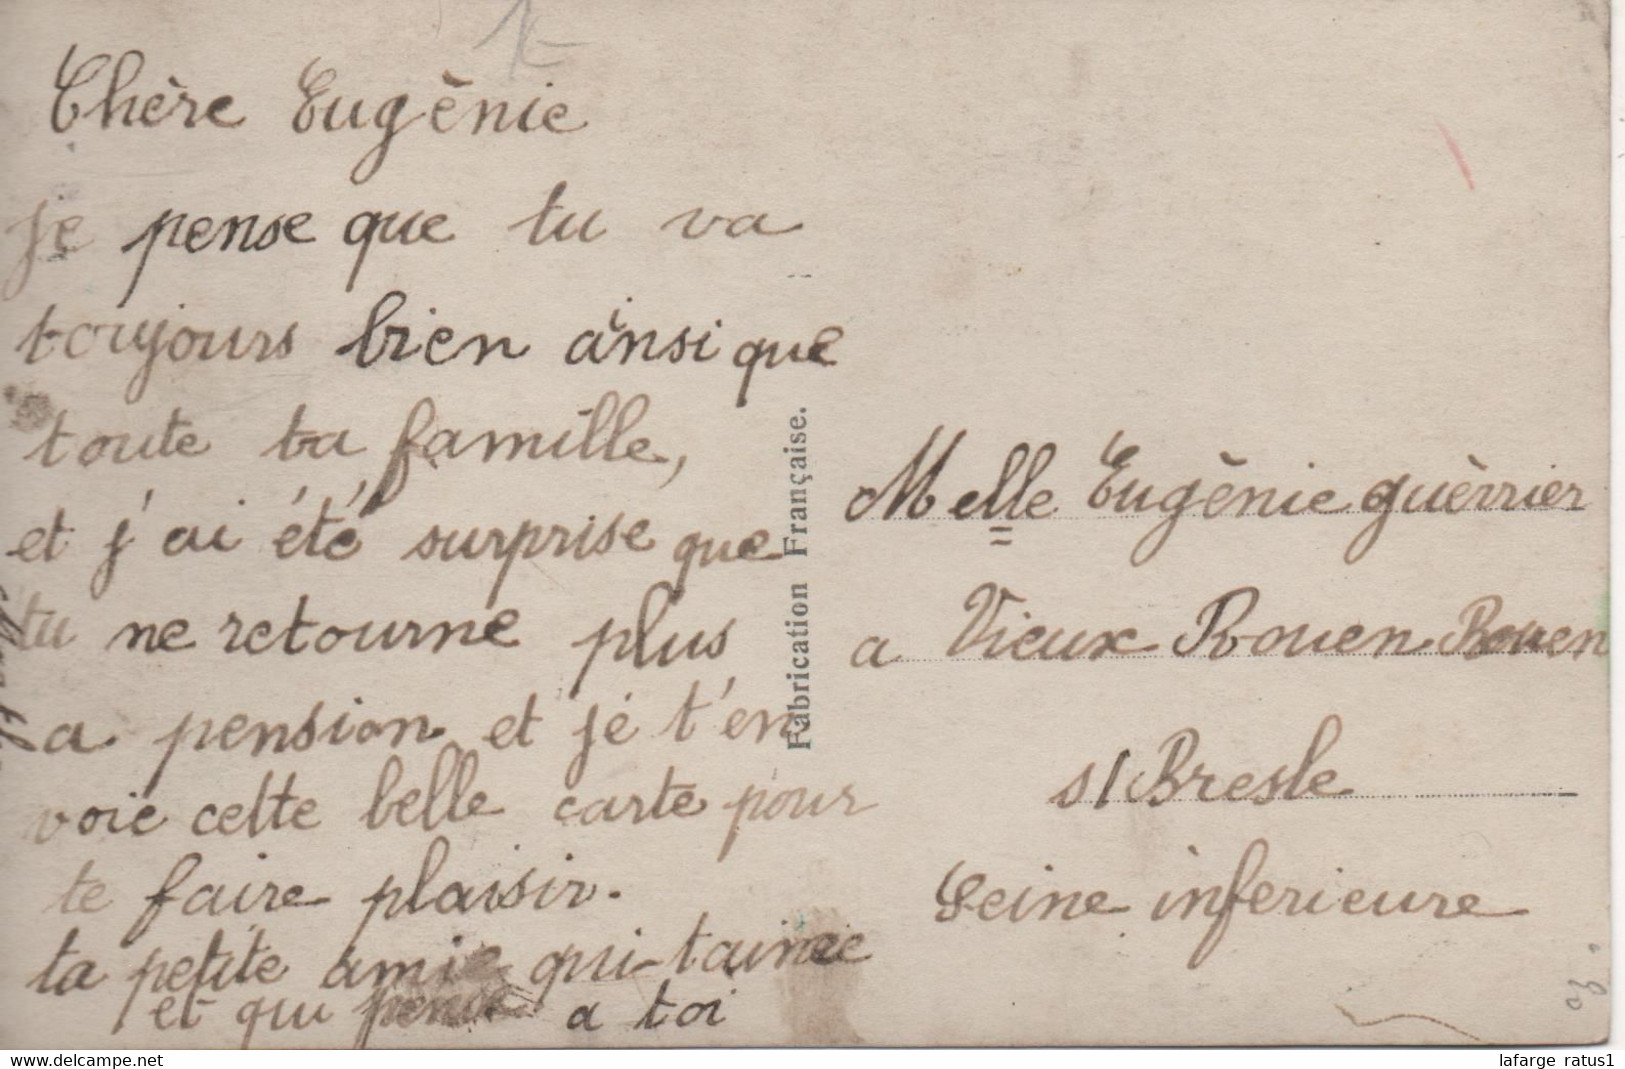 Chère Eugènie
je pense que tu va
toujours bien ainsi que
toute ta famille,
et j'ai été surprise que
tu ne retourne plus
a pension et je t'en
voie cette belle carte pour
te faire plaisir.
ta petite amie qui taime
et qui pense a toi
Fabrication Française.
Melle Eugènie guèrrier
a Vieux Rouen Rouen
s/Bresle
Seine inferieure
www.delcampe.net
lafarge_ratus1